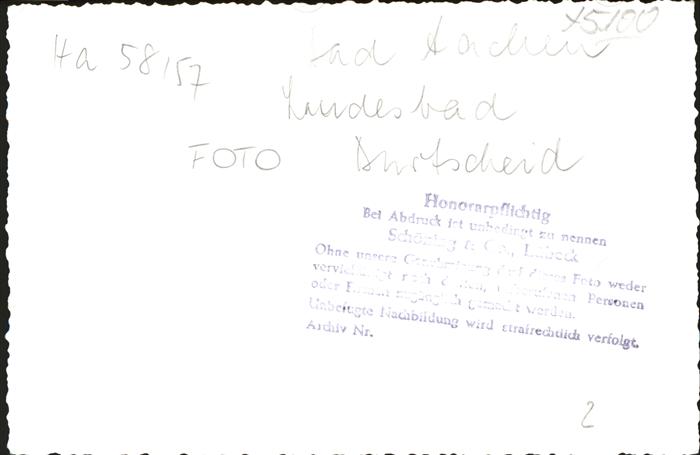 Ha 58/57
Bad Aachen
15.100
Landesbad
FOTO Burtscheid
Honorarpflichtig
Bei Abdruck ist unbedingt zu nennen
Schöning & Co., Lübeck
Ohne unsere Genehmigung darf dieses Foto weder
vervielfältigt noch dritten, unberufenen Personen
oder Firmen zugänglich gemacht werden.
Unbefugte Nachbildung wird strafrechtlich verfolgt.
Archiv Nr.
2